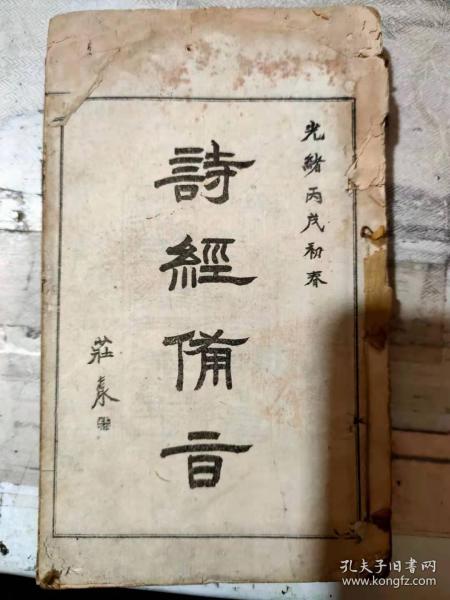 光緒丙戌初春
詩經備旨
莊
孔夫子旧书网
www.kongfz.com